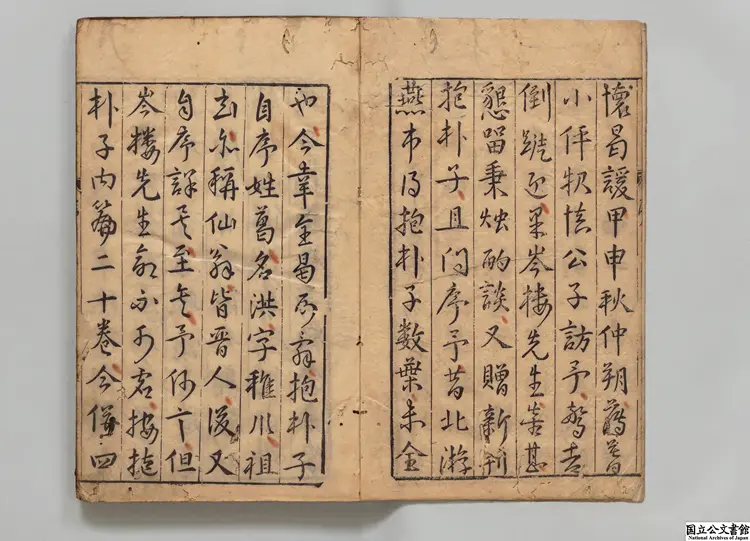 懷曷諼甲申秋仲朔
小伻報慎公子訪予驚喜
倒蹝迎果岑楼先生喜甚
懇留秉燭酌談又贈新刊
抱朴子且問序予昔北游
燕市得抱朴子数葉未全
也今幸全曷敢辭抱朴子
自序姓葛名洪字稚川祖
玄亦稱仙翁皆晋人後又
自序詳矣至矣予何言但
岑楼先生命不可按抱
朴子内篇二十巻今僅四
国立公文書館
National Archives of Japan